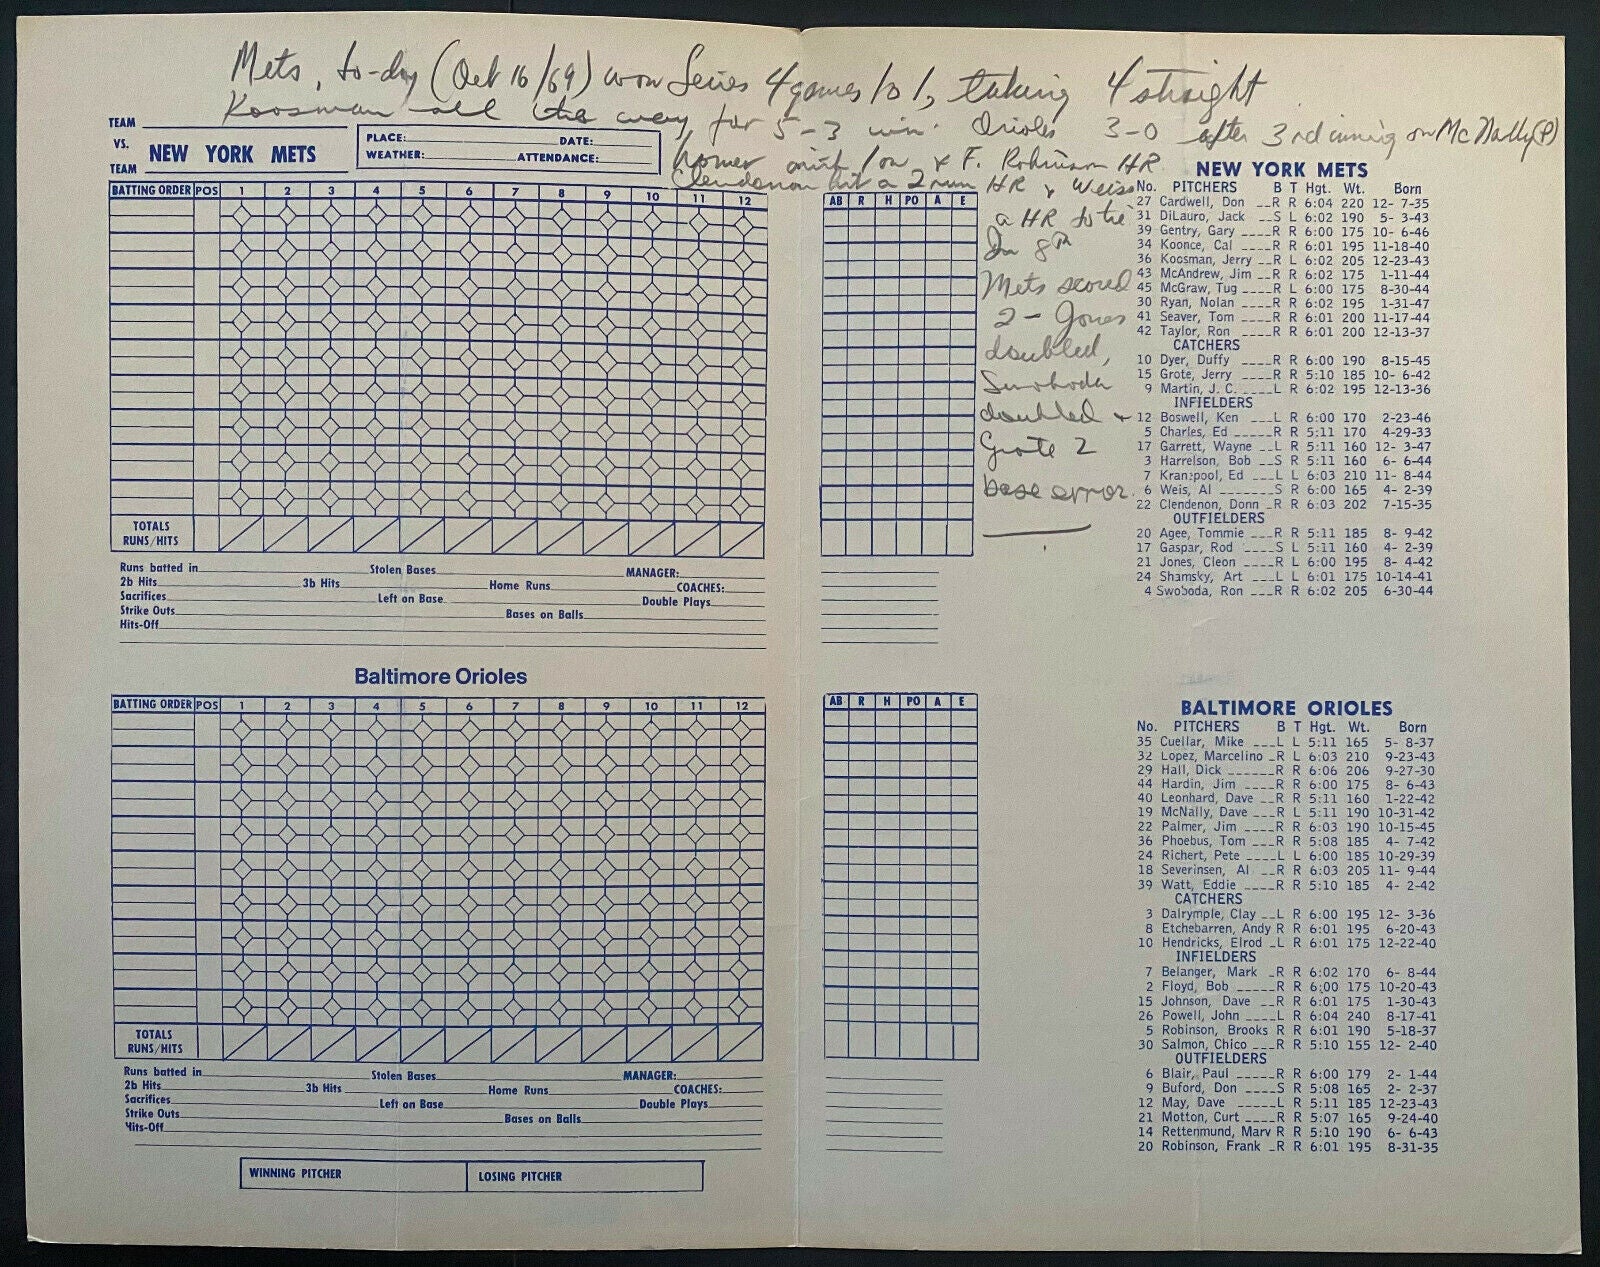 Mets, to-day (Oct 16/69) won Series 4 games to 1, taking 4 straight
Koosman all the way for 5-3 win. Orioles 3-0 after 3rd inning on McNally (P)
homer with 1 on & F. Robinson HR
Clendenon hit a 2 run HR & Weiss
a HR to tie
In 8th
Mets scored
2 - Jones
doubled,
Swoboda
doubled &
Grote 2
base error.
TEAM
VS.
NEW YORK METS
TEAM
PLACE: DATE:
WEATHER: ATTENDANCE:
BATTING ORDER POS 1 2 3 4 5 6 7 8 9 10 11 12
AB R H PO A E
TOTALS
RUNS/HITS
Runs batted in Stolen Bases MANAGER:
2b Hits 3b Hits Home Runs COACHES:
Sacrifices Left on Base Double Plays
Strike Outs Bases on Balls
Hits-Off
NEW YORK METS
No. PITCHERS B T Hgt. Wt. Born
27 Cardwell, Don R R 6:04 220 12- 7-35
31 DiLauro, Jack S L 6:02 190 5- 3-43
39 Gentry, Gary R R 6:00 175 10- 6-46
34 Koonce, Cal R R 6:01 195 11-18-40
36 Koosman, Jerry R L 6:02 205 12-23-43
43 McAndrew, Jim R R 6:02 175 1-11-44
45 McGraw, Tug R L 6:00 175 8-30-44
30 Ryan, Nolan R R 6:02 195 1-31-47
41 Seaver, Tom R R 6:01 200 11-17-44
42 Taylor, Ron R R 6:01 200 12-13-37
CATCHERS
10 Dyer, Duffy R R 6:00 190 8-15-45
15 Grote, Jerry R R 5:10 185 10- 6-42
9 Martin, J. C. L R 6:02 195 12-13-36
INFIELDERS
12 Boswell, Ken L R 6:00 170 2-23-46
5 Charles, Ed R R 5:11 170 4-29-33
17 Garrett, Wayne L R 5:11 160 12- 3-47
3 Harrelson, Bob S R 5:11 160 6- 6-44
7 Kranepool, Ed L L 6:03 210 11- 8-44
6 Weis, Al S R 6:00 165 4- 2-39
22 Clendenon, Donn R R 6:03 202 7-15-35
OUTFIELDERS
20 Agee, Tommie R R 5:11 185 8- 9-42
17 Gaspar, Rod S L 5:11 160 4- 2-39
21 Jones, Cleon R L 6:00 195 8- 4-42
24 Shamsky, Art L L 6:01 175 10-14-41
4 Swoboda, Ron R R 6:02 205 6-30-44
Baltimore Orioles
BATTING ORDER POS 1 2 3 4 5 6 7 8 9 10 11 12
AB R H PO A E
TOTALS
RUNS/HITS
Runs batted in Stolen Bases MANAGER:
2b Hits 3b Hits Home Runs COACHES:
Sacrifices Left on Base Double Plays
Strike Outs Bases on Balls
Hits-Off
WINNING PITCHER LOSING PITCHER
BALTIMORE ORIOLES
No. PITCHERS B T Hgt. Wt. Born
35 Cuellar, Mike L L 5:11 165 5- 8-37
32 Lopez, Marcelino R L 6:03 210 9-23-43
29 Hall, Dick R R 6:06 206 9-27-30
44 Hardin, Jim R R 6:00 175 8- 6-43
40 Leonhard, Dave R R 5:11 160 1-22-42
19 McNally, Dave R L 5:11 190 10-31-42
22 Palmer, Jim R R 6:03 190 10-15-45
36 Phoebus, Tom R R 5:08 185 4- 7-42
24 Richert, Pete L L 6:00 185 10-29-39
18 Severinsen, Al R R 6:03 205 11- 9-44
39 Watt, Eddie R R 5:10 185 4- 2-42
CATCHERS
3 Dalrymple, Clay L R 6:00 195 12- 3-36
8 Etchebarren, Andy R R 6:01 195 6-20-43
10 Hendricks, Elrod L R 6:01 175 12-22-40
INFIELDERS
7 Belanger, Mark R R 6:02 170 6- 8-44
2 Floyd, Bob R R 6:00 175 10-20-43
15 Johnson, Dave R R 6:01 175 1-30-43
26 Powell, John L R 6:04 240 8-17-41
5 Robinson, Brooks R R 6:01 190 5-18-37
30 Salmon, Chico R R 5:10 155 12- 2-40
OUTFIELDERS
6 Blair, Paul R R 6:00 179 2- 1-44
9 Buford, Don S R 5:08 165 2- 2-37
12 May, Dave L R 5:11 185 12-23-43
21 Motton, Curt R R 5:07 165 9-24-40
14 Rettenmund, Marv R R 5:10 190 6- 6-43
20 Robinson, Frank R R 6:01 195 8-31-35